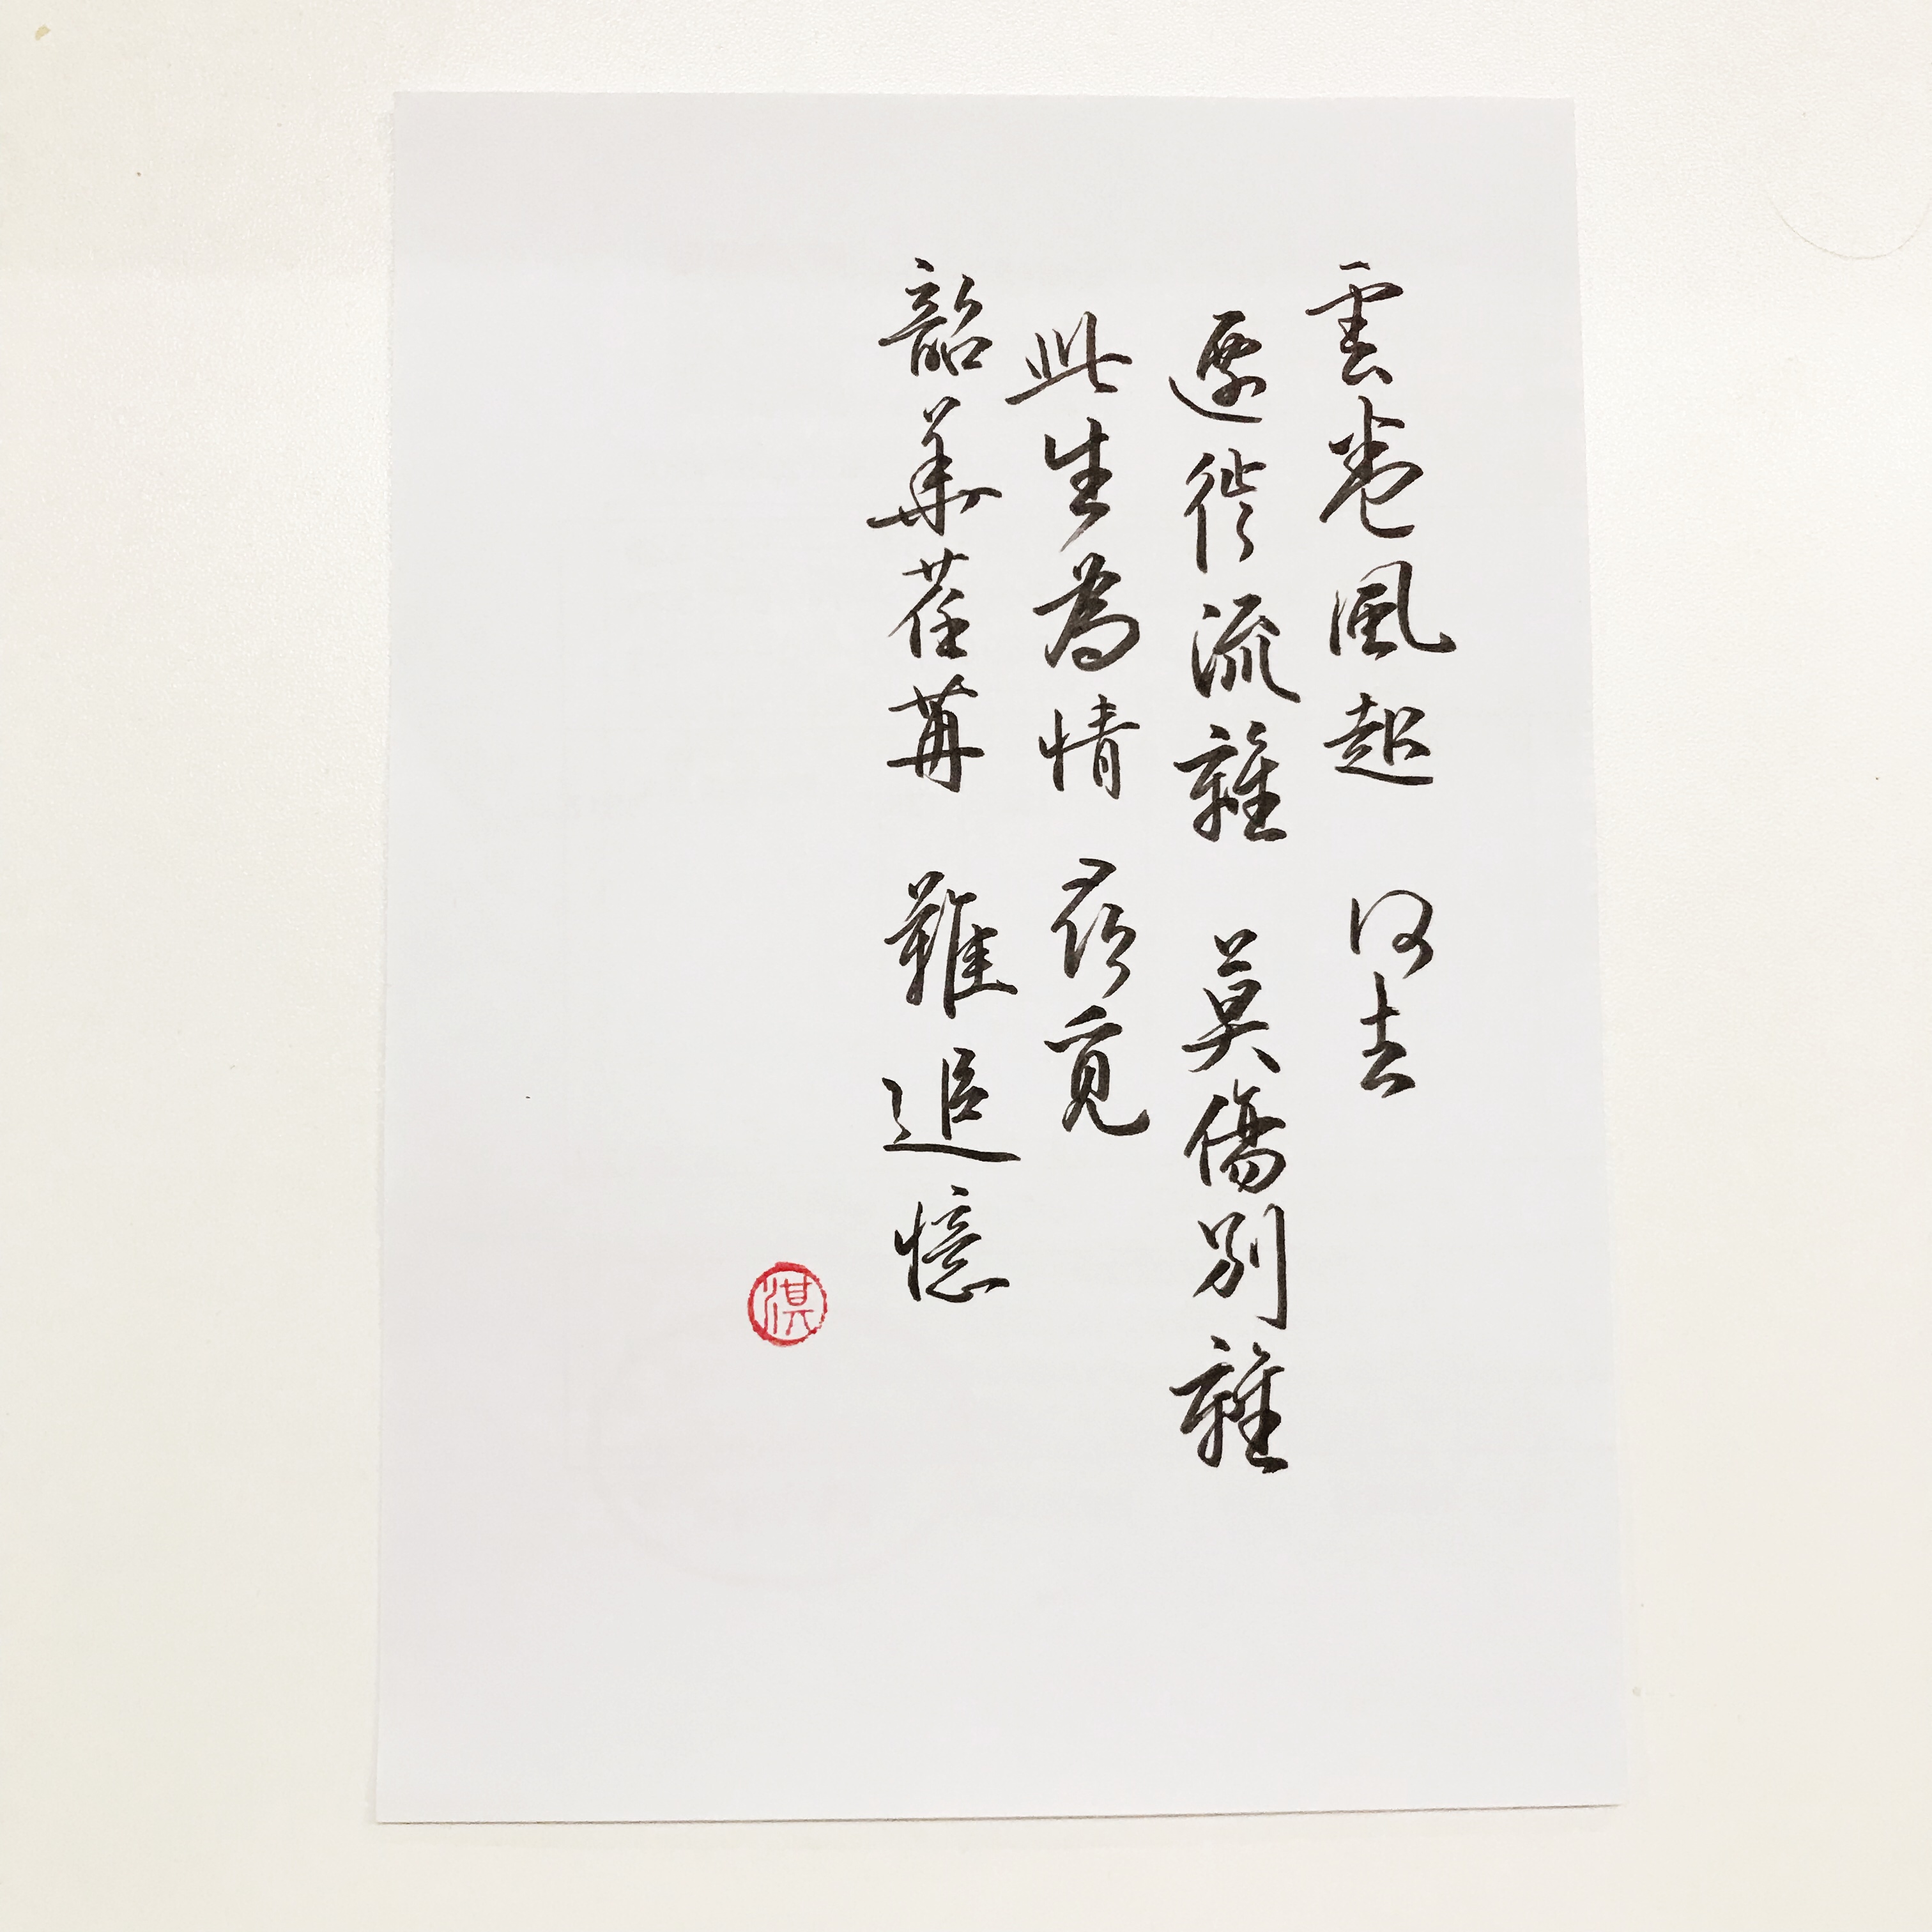 雲卷風起 何去
遷徙流離 莫傷別離
此生為情 所覓
韶華荏苒 難追憶
淇